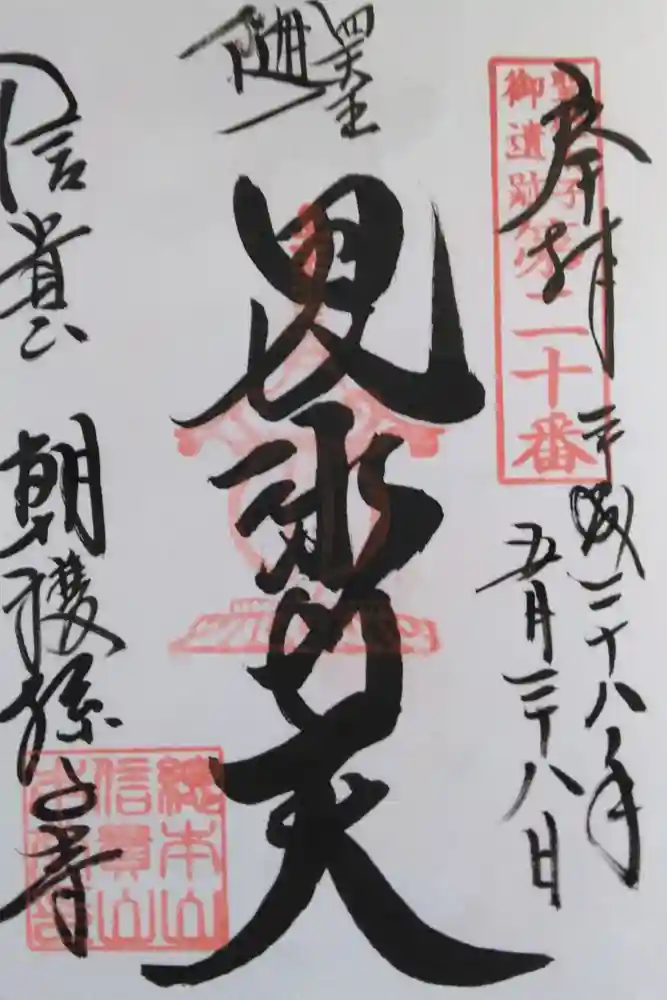 奉拝
平成二十八年
五月二十八日
聖徳太子
御遺跡
第二十番
四天王
随一
毘沙門天
信貴山
朝護孫子寺
總本山
信貴山